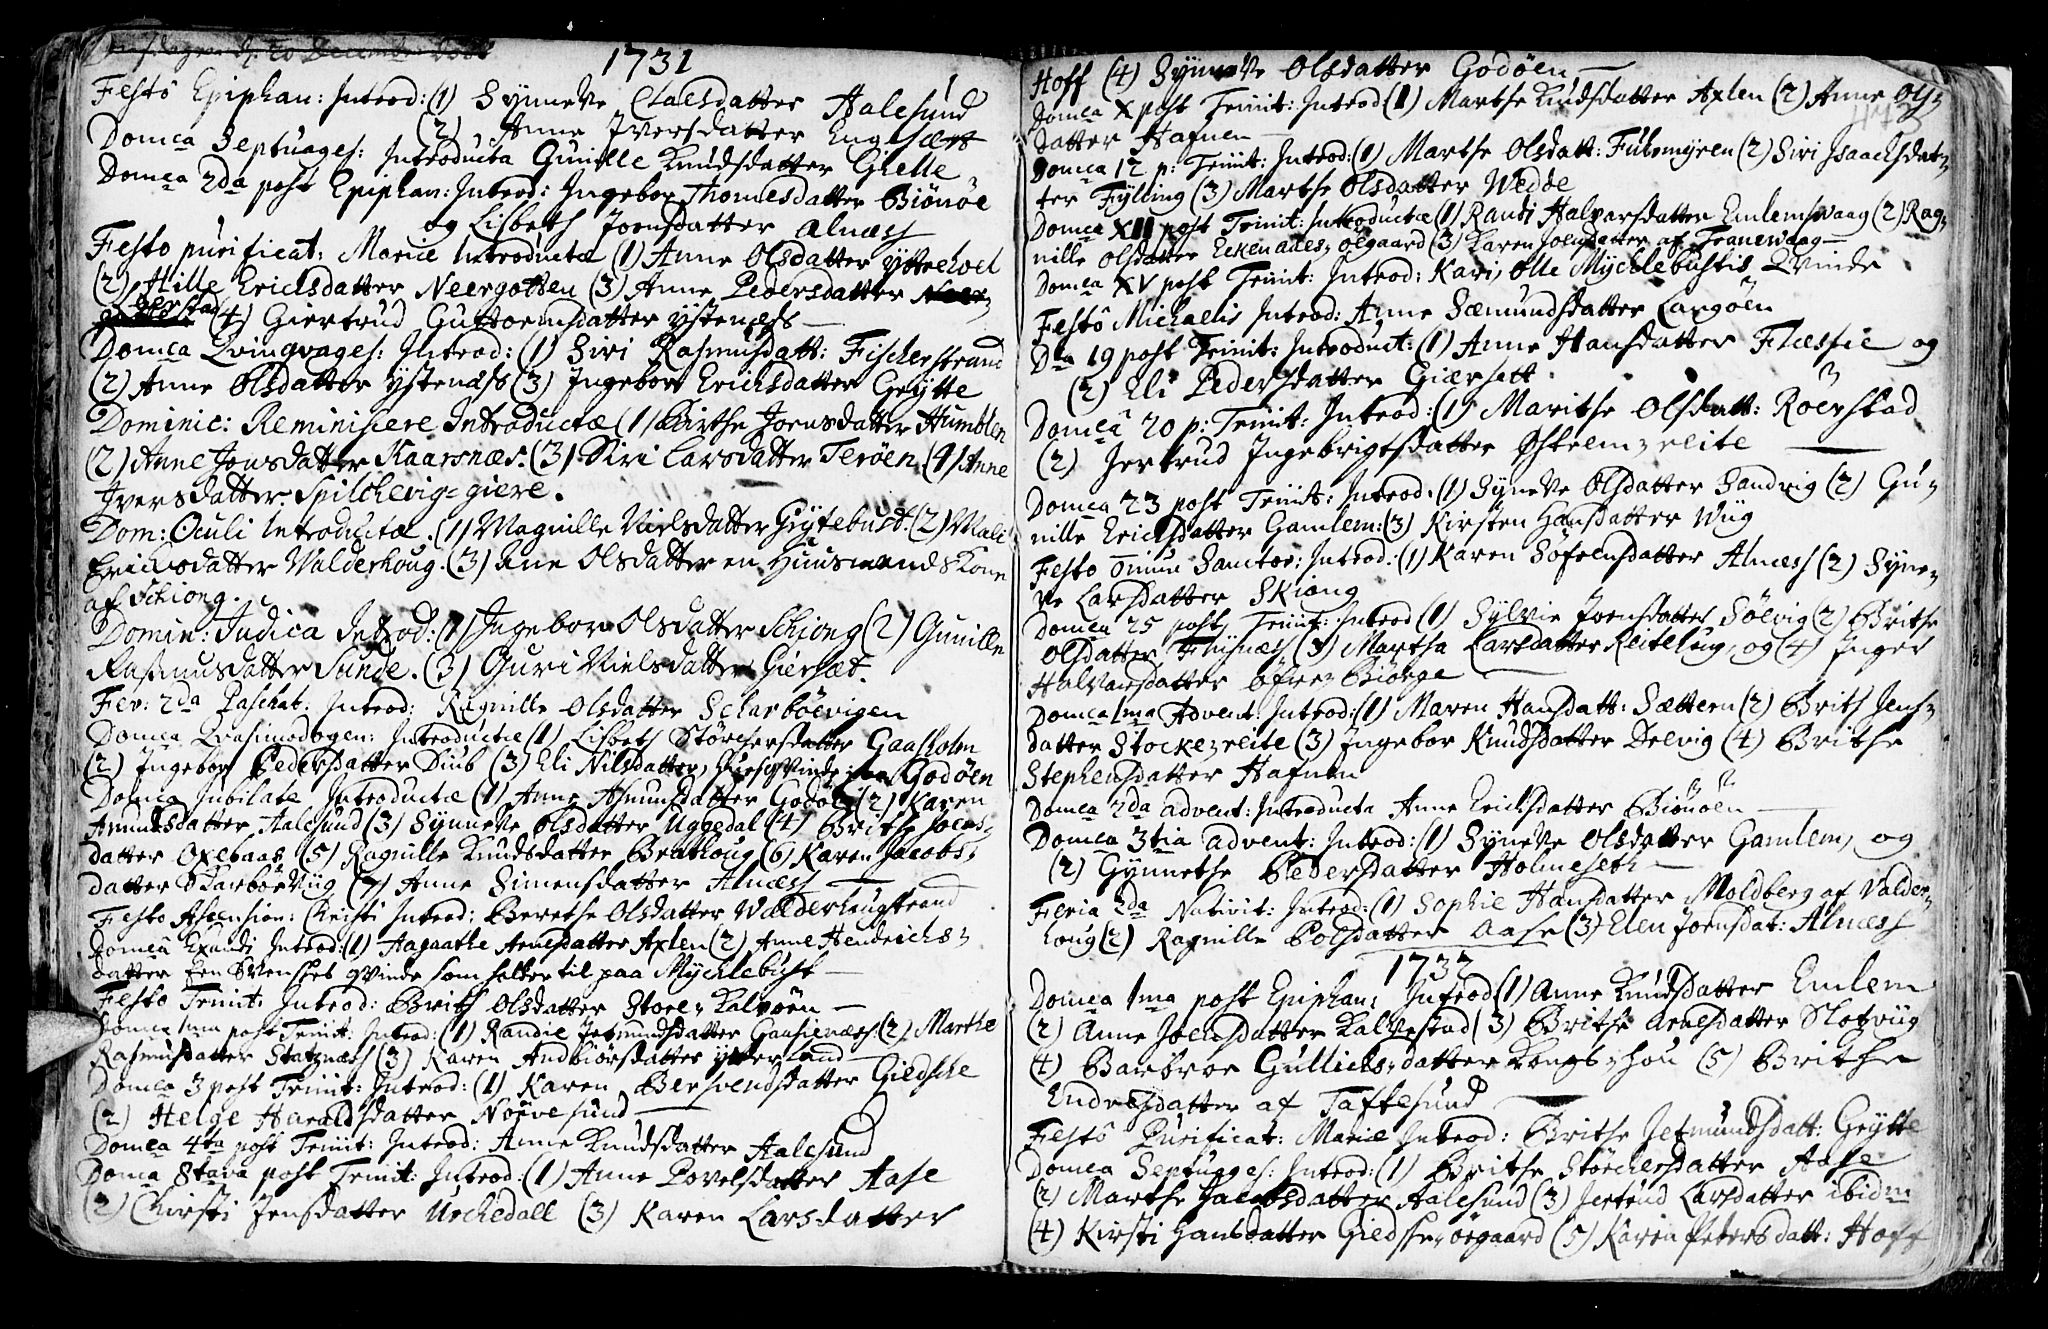 1731
Festô Epiphan: Introd: (1) Synneve Claesdatter Aalesund
(2) Anne Iversdatter Engesætt
Domca Septuages: Introducta Gunille Knudsdatter Giette
Domca 2da post Epiphan: Introd: Ingebor Thomesdatter Biönöe
og Lisbeth Joensdatter Alnæss
Festo purificat: Mariæ Introductæ (1) Anne Olsdatter Ytterhoel
(2) Hille Ericksdatter Neergotten (3) Anne Pedersdatter
(4) Giertrud Guttormsdatter Ystenæss
Domca Qvinqvages: Introd: (1) Siri Rasmusdatt: Fischerstrand
(2) Anne Olsdatter Ystenæss (3) Ingebor Ericksdatter Grytte
Dominic: Reminisiere Introductæ (1) Birthe Jornsdatter Humblen
(2) Anne Jonsdatter Kaarsnæs. (3) Siri Larsdatter Teröen (4) Anne
Iversdatter Spilchevig=giere.
Dom: Oculi Introductæ. (1) Magnille Nielsdatter Grytebust. (2) Mali
Ericksdatter Walderhoug. (3) Ane Olsdatter en Huusmands Kone
af Schiong.
Domin: Judica Introd: (1) Ingebor Olsdatter Schiong (2) Gunille
Rasmusdatter Sunde. (3) Guri Nielsdatter Giersæt.
Fer: 2da Paschat: Introd: Ragnille Olsdatter Scharböevigen
Domca Qvasimodogen: Introductæ (1) Lisbeth Störchersdatter Gaasholm
(2) Ingebor Pedersdatter Diub (3) Eli Nilsdatter, Godöen
Domca Jubilate Introductæ (1) Anne Asmunsdatter Godöen (2) Karen
Amundsdatter Aalesund (3) Synneve Olsdatter Uggedal (4) Brithe Joens-
datter Oxebaas (5) Ragnille Knudsdatter Bratholig (6) Karen Jacobs-
datter Skarböevüg (7) Anne Simensdatter Alnæss
Festo Ascension: Christi Introd: Berethe Olsdatter Walderhougstrand
Domca Exaudi Introd: (1) Aagaathe Arnesdatter Axlen (2) Anne Hendrichs-
datter Een Svensches qvinde som holder til paa Mychlebust
Festo Trinit: Introd: Brith Olsdatter Store-Kalvöen
Domca 1ma post Trinit: Introd: (1) Randie Jetmundsdatter Gaasenæss (2) Marthe
Rasmusdatter Statznæss (3) Karen Andbiörsdatter Ytterland
Domca 3 post Trinit: Introd: (1) Karen Bersvendsdatter Giedsche
(2) Helge Haraldsdatter Nörvesund
Domca 4ta post Trinit: Introd: Anne Knudsdatter Aalesund
Domca 8tava post Trinit: Introd: (1) Anne Povelsdatter Aase
(2) Christi Jensdatter Urchedall (3) Karen Larsdatter
Hoff (4) Synneve Olsdatter Godöen
Domca X post Trinit: Introd (1) Marthe Knudsdatter Axlen (2) Anne Ols-
datter Hafnen
Domca 12 p: Trinit: Introd: (1) Marthe Olsdatt: Fulemyren (2) Siri Isaachsdat-
ter Fylling (3) Marthe Olsdatter Wedde
Domca XIII post Trinit: Introductæ (1) Randi Halvarsdatter Emlemsvaag (2) Rag-
nille Olsdatter Eckenæes, ölgaard (3) Karen Joensdatter af Tranevaag
Domca XV post Trinit: Introd: Kari, Olle Mychlebustis Qvinde
Festô Michaelis Introd: Anne Sæmundsdatter Langöen
Dca 19 post Trinit: Introduct: (1) Anne Hansdatter Flæsfie og
(2) Eli Pedersdatter Giærsett
Domca 20 p: Trinit: Introd: (1) Marithe Olsdatt: Röerstad
(2) Jertrud Ingebrigtsdatter Östrem-reite
Domca 23 post Trinit: Introd: (1) Syneve Olsdatter Sandvig (2) Gu-
nille Ericksdatter Gamlem: (3) Kirsten Hansdatter Wüg
Festo Omium Sanctor: Introd: (1) Karen Söfrensdatter Alnæss (2) Syne-
ve Larsdatter Skiong
Domca 25 post Trinit: Introd (1) Sylvie Joensdatter Sölvig (2) Brithe
Olsdatter Flisnæss (3) Martha Larsdatter Reitelug, og (4) Inger
Halvarsdatter Öfre-Biörge
Domca 1ma Advent: Introd: (1) Maren Hansdatt: Sættern (2) Brith Jens-
datter Stocke-reite (3) Ingebor Knudsdatter Delvig (4) Brithe
Stephensdatter Hafnen
Domca 2da advent: Introducta Anne Ericksdatter Biönöen
Domca 3tia advent: Introd: (1) Syneve Olsdatter Gamlem, og
(2) Gynnethe Pedersdatter Holmeseth
Feria 2da Nativit: Introd: (1) Sophie Hansdatter Moldberg af Valder-
houg (2) Ragnille Polsdatter Aase (3) Elen Joensdat: Alnæss
1732
Domca 1ma post Epiphan: Introd (1) Anne Knudsdatter Emlem
(2) Anne Joensdatter Kalvestad (3) Brithe Arnesdatter Slotvüg
(4) Barbroe Gullichs-datter Kongs-hou (5) Brithe
Endresdatter af Taftesund
Festô Purificat: Mariæ Introd: Brithe Jetmundsdatt: Grytte
Domca Septuages: Introd: (1) Brithe Störchersdatter Aase
(2) Marthe Jacobsdatter Aalesund (3) Jertrud Larsdatter ibidm
(4) Kirsti Hansdatter Giedsche-öegaard (5) Karen Petersdatt: Hoff